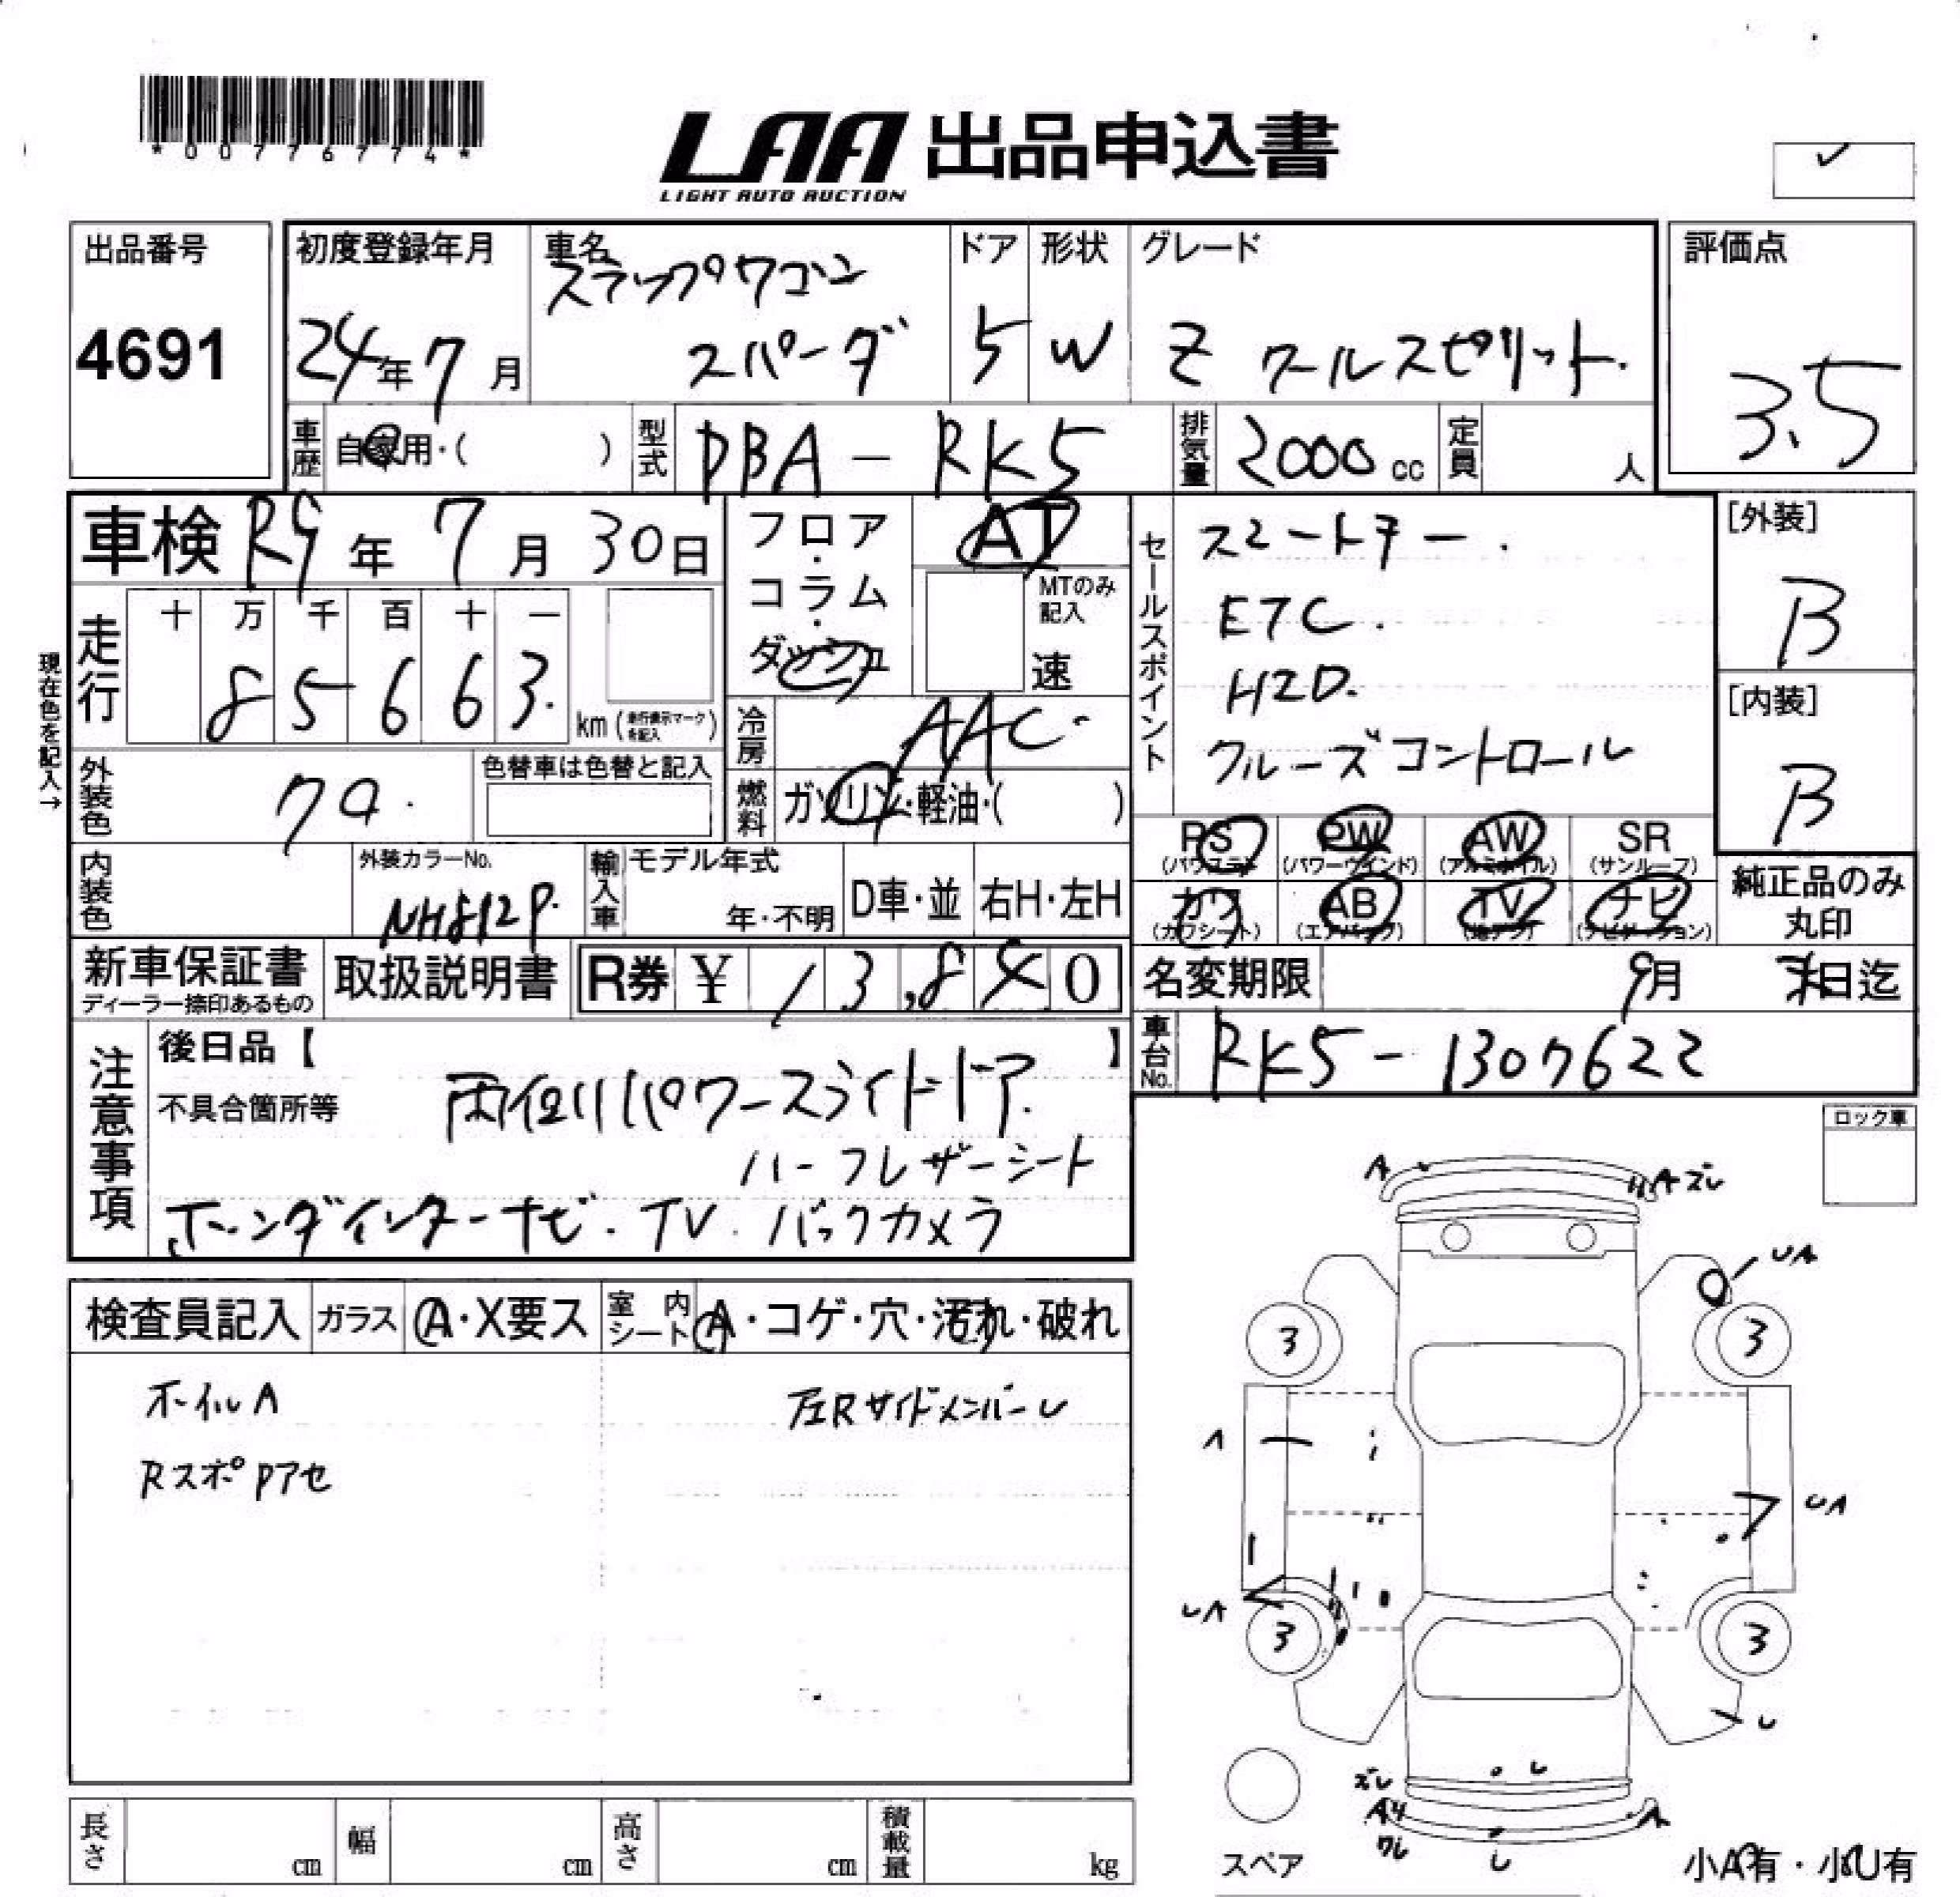 *00776774*
LAA 出品申込書
LIGHT AUTO AUCTION
出品番号
4691
初度登録年月
24年7月
車名
ステップワゴン
スパーダ
ドア
5
形状
W
グレード
Z クールスピリット.
評価点
3.5
車歴
自家用・( )
型式
DBA-RK5
排気量
2000cc
定員
人
車検 R9年 7月 30日
現在色を記入→
走行
十 万 千 百 十 一
8 5 6 6 3. km (走行表示マークを記入)
フロア・コラム・ダッシュ
AT
MTのみ記入
速
冷房
AAC
燃料
ガソリン・軽油・( )
セールスポイント
スマートキー.
ETC.
HID.
クルーズコントロール
[外装]
B
[内装]
B
外装色
クロ.
色替車は色替と記入
PS (パワステ)
PW (パワーウインド)
AW (アルミホイル)
SR (サンルーフ)
カワ (カワシート)
AB (エアバッグ)
TV (地デジ)
ナビ (ナビゲーション)
純正品のみ丸印
内装色
外装カラーNo.
NH812P.
輸入車
モデル年式
年・不明
D車・並
右H・左H
新車保証書
ディーラー捺印あるもの
取扱説明書
R券 ¥ 13,840
名変期限
9月 末日迄
車台No.
RK5-1307622
注意事項
後日品【 】
不具合箇所等
両側パワースライドドア.
ハーフレザーシート
ホンダインターナビ. TV. バックカメラ
ロック車
検査員記入
ガラス
A・X要ス
室内シート
A・コゲ・穴・汚れ・破れ
ホイルA
左RサイドメンバーU
RスポPアセ
A
A ズレ
UA
3
3
A
UA
UA
3
3
U
ズレ
U
A4
ワレ
A
U
スペア
小A有・小U有
長さ
cm
幅
cm
高さ
cm
積載量
kg